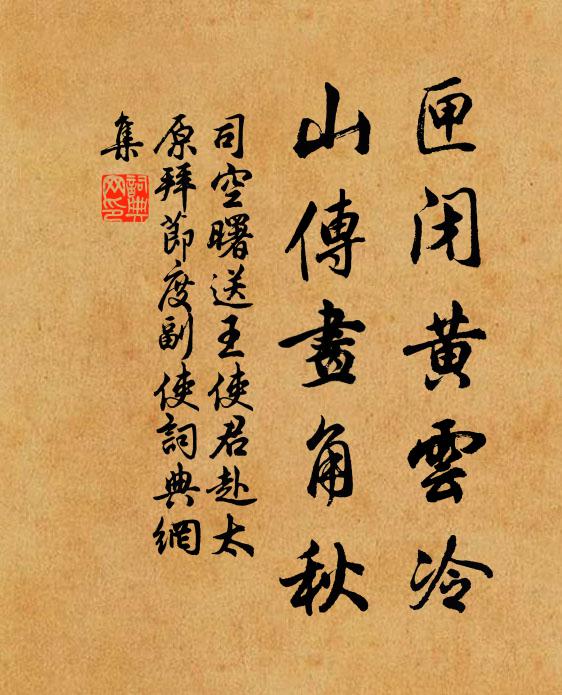 匣闭黄雲冷
山傳畫角秋
司空曙送王使君赴太
原拜節度副使詞典網
集
詞典
网印